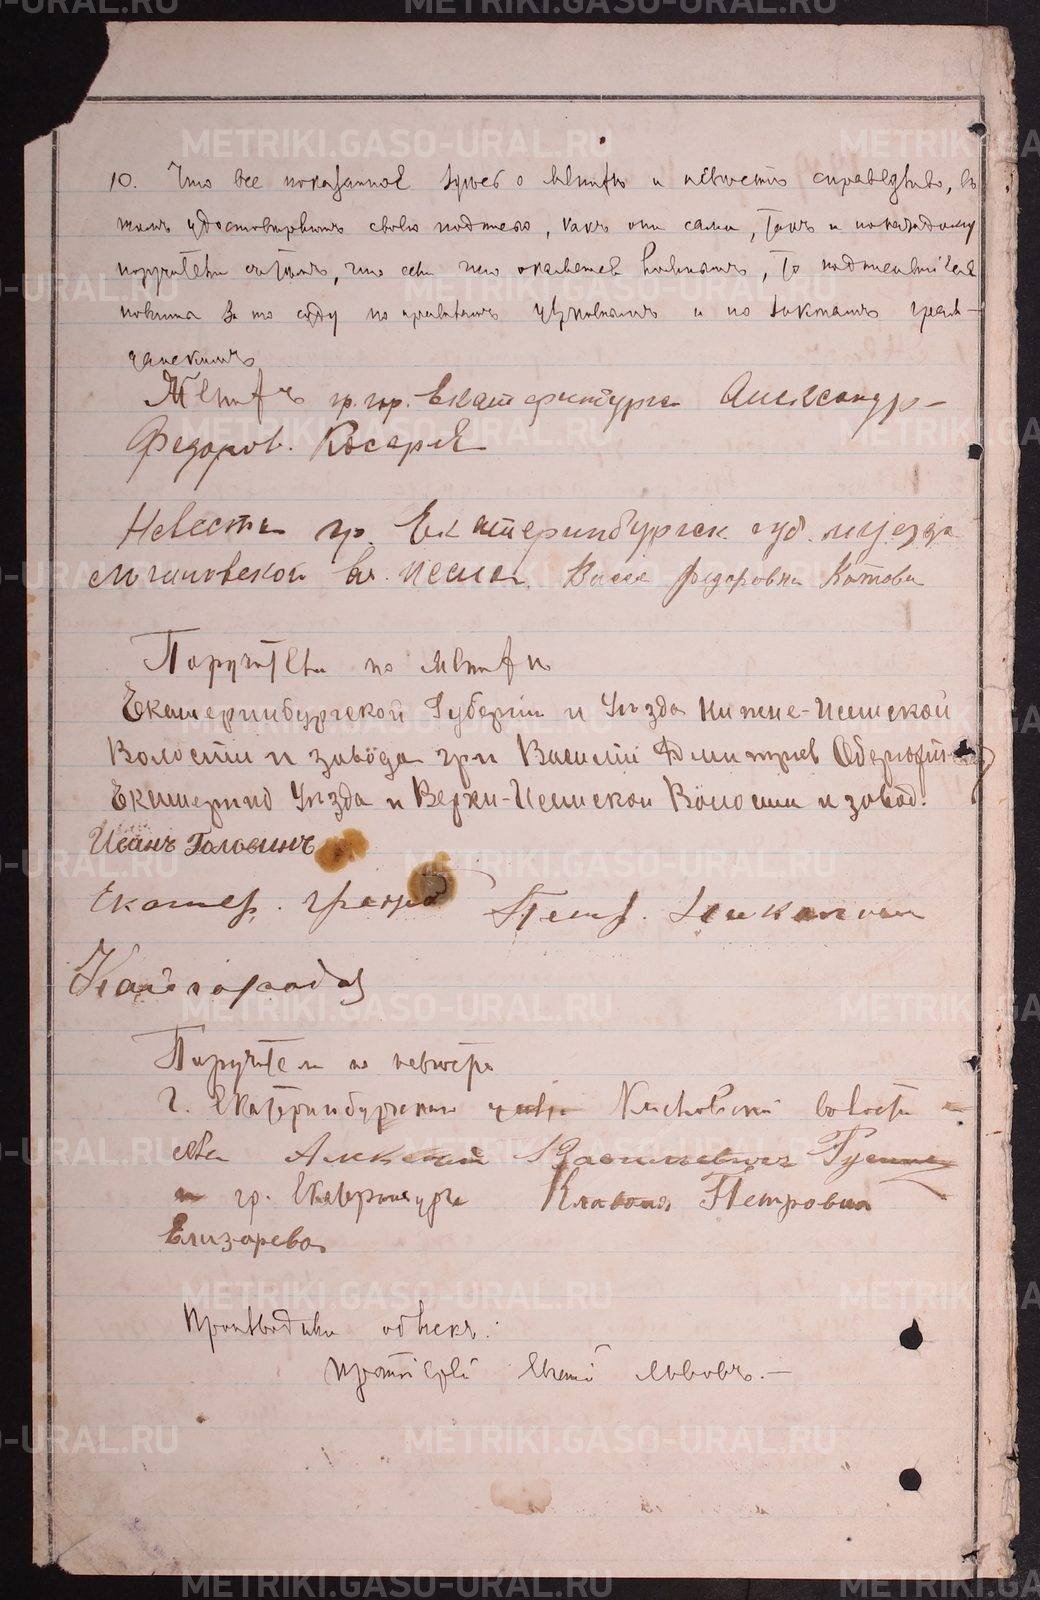 10. Что все показанное здесь о женихѣ и невѣстѣ справедливо, въ
томъ удостовѣряютъ своею подписью, какъ они сами, такъ и по каждому
поручители съ тѣмъ, что если что окажется ложнымъ, то подписавшіеся
повинны за то суду по правиламъ церковнымъ и по законамъ граж-
данскимъ
Женихъ гр. гор. Екатеринбурга Александр
Федоров. Косарев
Невеста гр. Екатеринбургск губ. и уезда
вл. и села Васса Федоровна Котова
Поручители по женихѣ
Екатеринбургской Губерніи и Уѣзда Нижне-Исетской
Волости и завода гр-н Василій Дмитриев
Екатеринб Уѣзда и Верхн-Исетской Волости и завод.
Иванъ Головинъ
Екатер. гражд Петр.
Кайгородов
Поручители по невѣстѣ
г. Екатеринбургскаго уезда волости
села Алексей Васильевич
и гр. Екатеринбурга Клавдия Петровна
Елизарева
Производилъ обыск:
Протоіерей Львовъ. —
METRIKI.GASO-URAL.RU